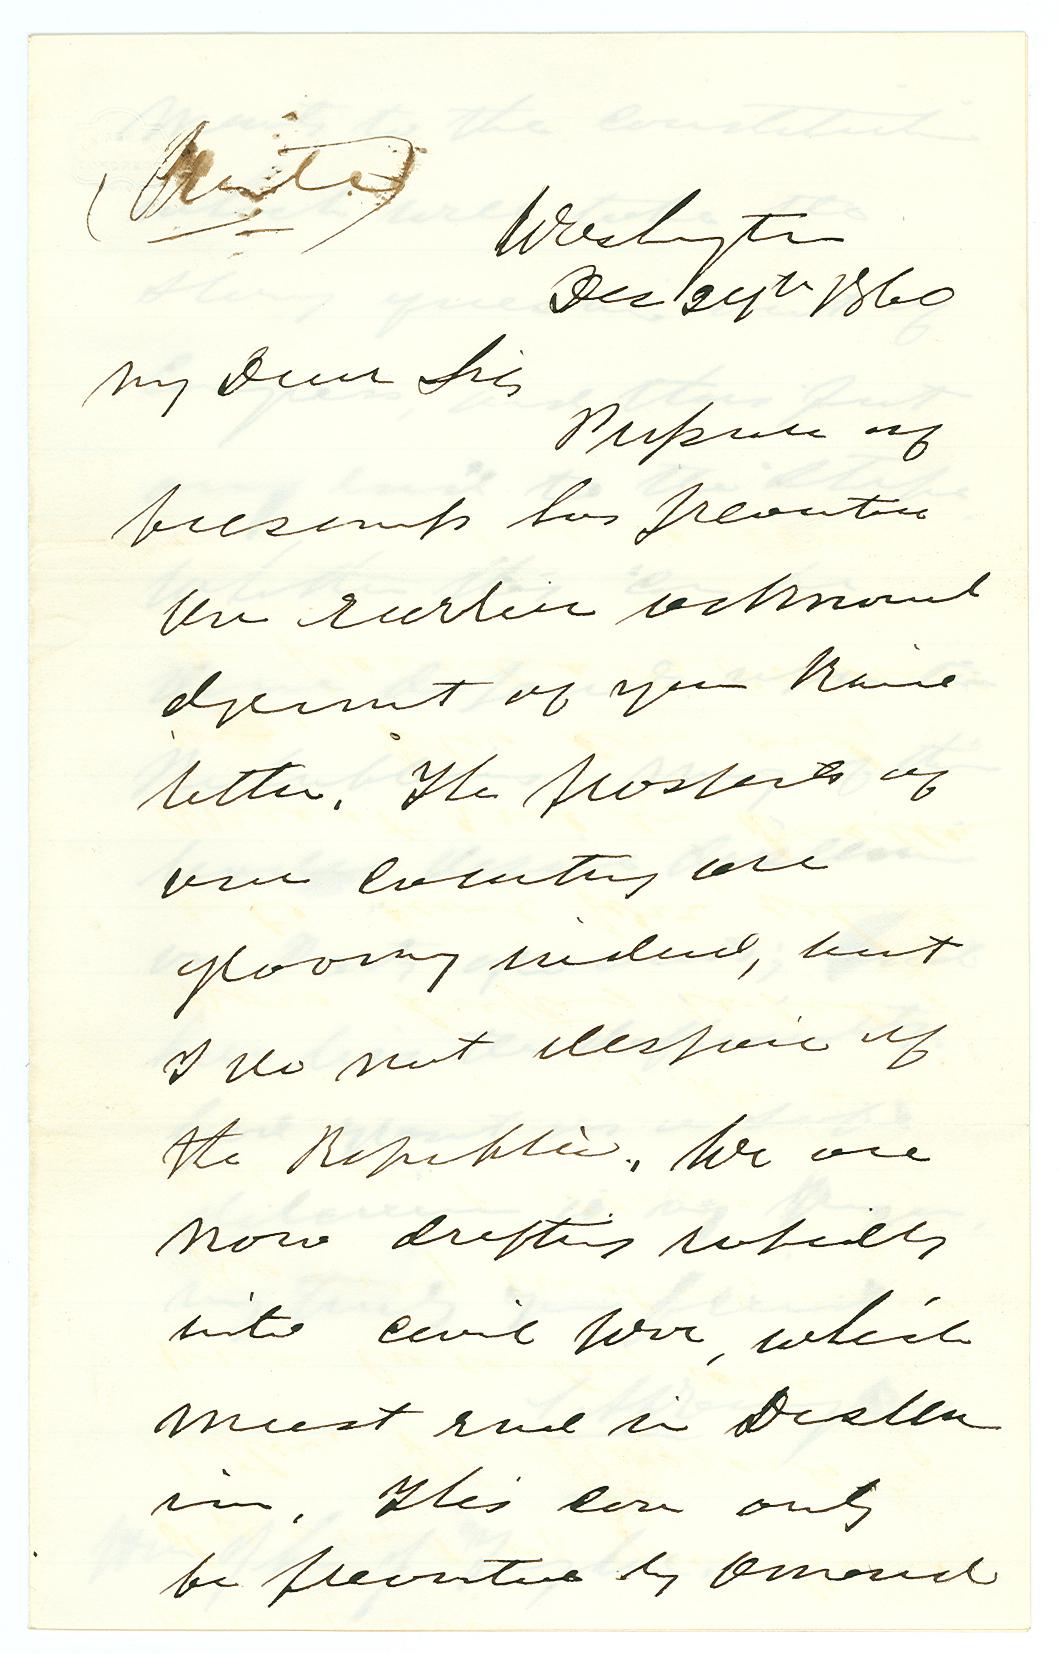 (Private)
Washington
Dec 29th 1860
My Dear Sir,
Pressure of
business has prevented
an earlier acknowl
edgement of your kind
letter. The prospects of
our country are
gloomy indeed, but
I do not despair of
the Republic. We are
now drifting rapidly
into civil war, which
must end in Disun
ion. This can only
be prevented by amend